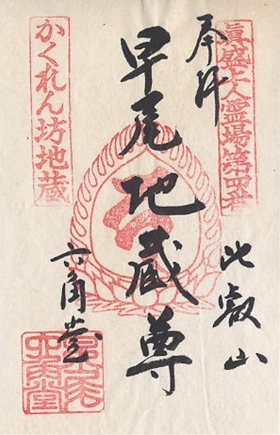 眞盛上人霊場第四番
奉拝
比叡山
早尾地蔵尊
六角堂
かくれん坊地蔵